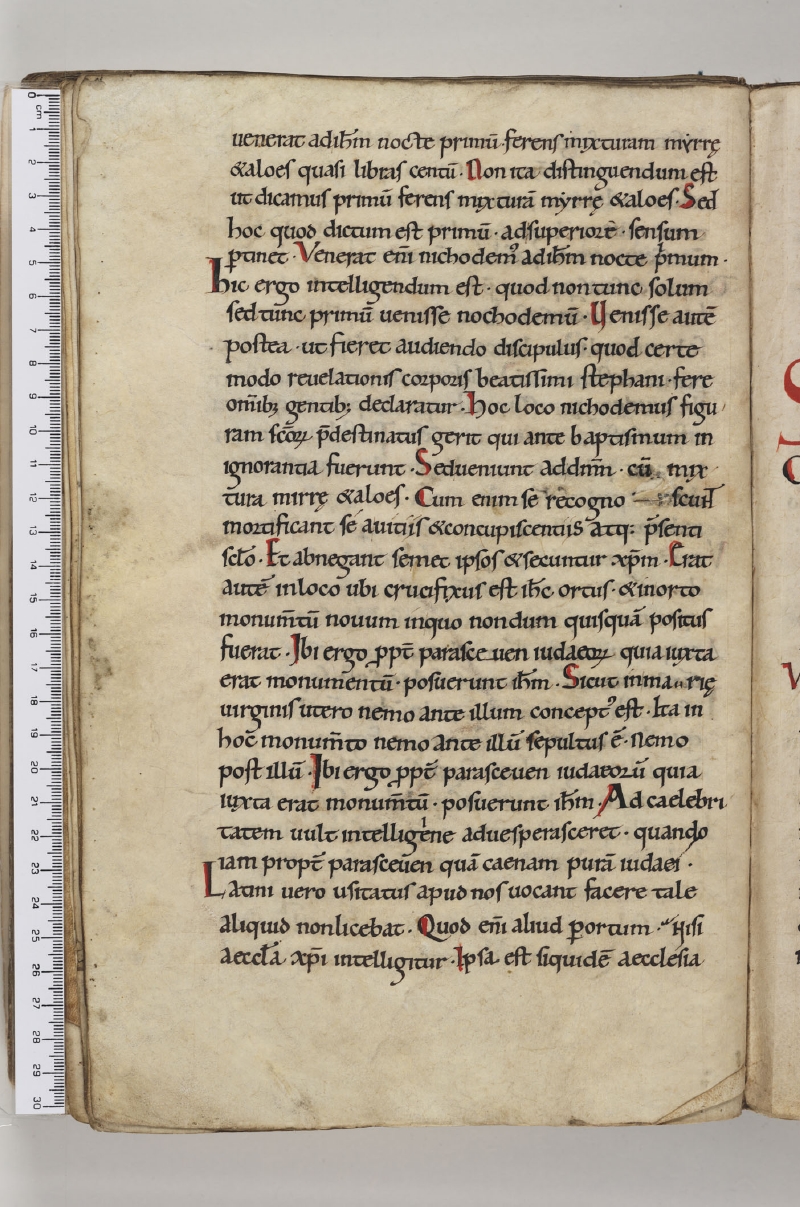 uenerat ad ihm̅ nocte primū·ferens mixturam myrrę
&aloes quasi libras centū·Non ita distinguendum est
ut dicamus primū ferens mixturā myrrę &aloes·Sed
hoc quod dictum est primū·ad superiorē·sensum
ꝑtinet·Venerat eni̅ nichodemꝰ ad ihm̅ nocte p̅mum·
hic ergo intelligendum est·quod non tunc solum
sed tunc primū uenisse nochodemū·Uenisse autē
postea·ut fieret audiendo discipulus·quod certe
modo reuelationis corporis beatissimi stephani·fere
omib; gentib; declaratur·hoc loco nichodemus figu
ram sc̅oꝝ p̅destinatus gerit qui ante baptismum in
ignorantia fuerunt·Sed ueniunt ad dnm̅·cū mix
tura mirrę &aloes·Cum enim se recogno — scunt̅
mortificant se auitiis &concupiscentiis atq: p̅senti
sc̅lo·Et abnegant semet ipsos &secuntur xp̅m·Erat
autē in loco ubi crucifixus est ihc̅ ortus·&in orto
monum̅tū nouum in quo nondum quisquā positus
fuerat·Ibi ergo ꝓpt̅ parasceuen iudaeoꝝ quia iuxta
erat monumentū·posuerunt ihm̅·Sicut in marię
uirginis utero nemo ante illum conceptꝰ est·Ita in
hoc monum̅to nemo ante illū sepultus ē·Nemo
post illū·Ibi ergo ꝓpt̅ parasceuen iudaeorū quia
iuxta erat monum̅tū·posuerunt ihm̅·Ad caelebri
tatem uult intelligine aduesperasceret·quando
iam propt̅ parasceuen quā caenam purā iudaei·
Latini uero usitatus apud nos uocant facere tale
aliquid non licebat·Quod eni̅ aliud ꝑ ortum·Nisi
aeccl̅a xp̅i intelligitur·Ipsa est siquidē aecclesia